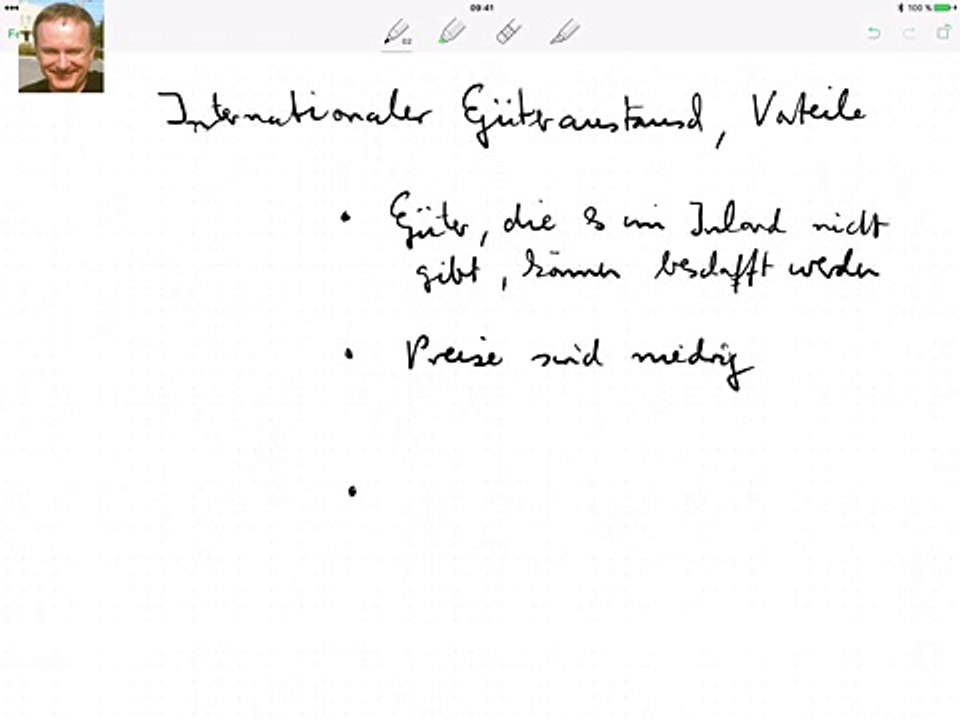 09:41
100 %
Fe
02
Internationaler Güteraustausch, Vorteile
• Güter, die es im Inland nicht
gibt, können beschafft werden
• Preise sind niedrig
•